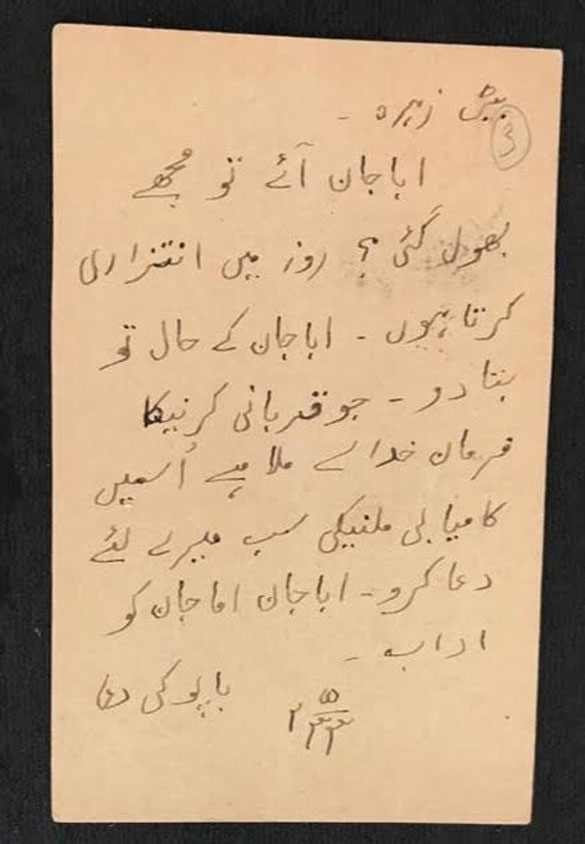 بیٹی زہرہ -
3
اباجان آئے تو مجھے
بھول گئی ؟ روز میں انتزاری
کرتا ہوں - اباجان کے حال تو
بتا دو - جو قربانی کرنیکا
فرمان خدا سے ملا ہے اُسمیں
کامیابی ملنیکی سب میرے لئے
دعا کرو - اباجان اماجان کو
اداب -
باپو کی دعا